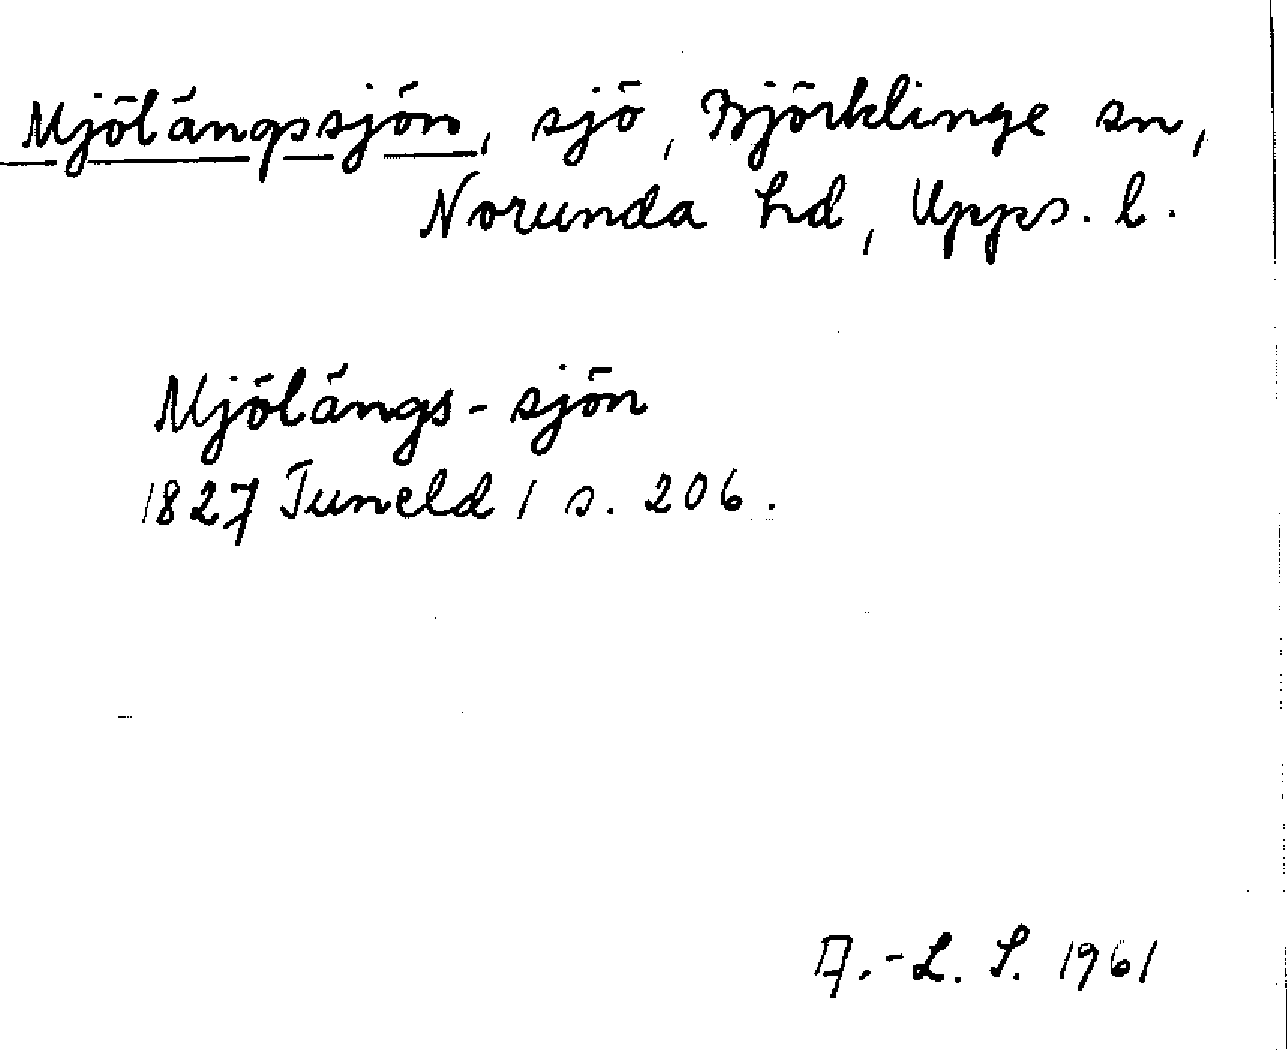 Mjölängssjön, sjö, Björklinge sn,
Norunda hd, Upps. l.
Mjölängs-sjön
1827 Tuneld 1 s. 206.
A.-L. S. 1961